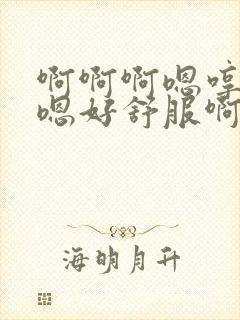 啊啊啊嗯哼
嗯好舒服啊
海明月升